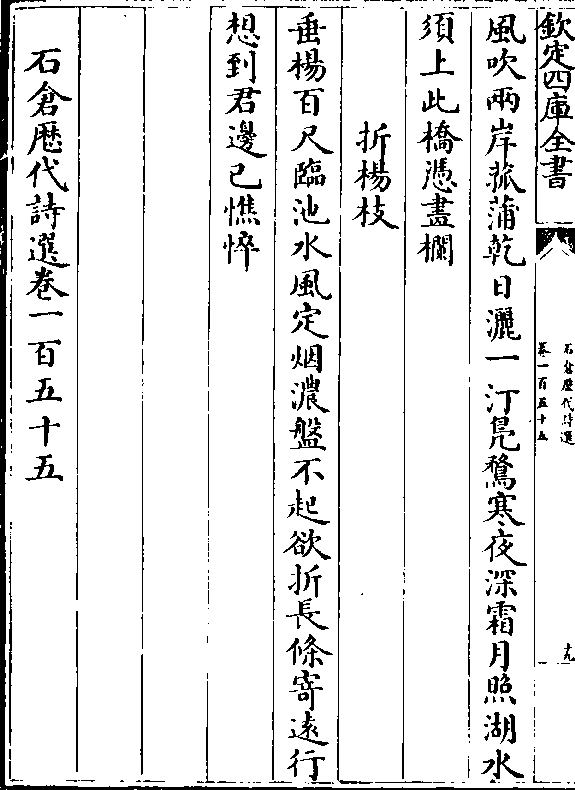 欽定四庫全書
石倉歷代詩選
卷一百五十五
十九
風吹兩岸菰蒲乾日灑一汀鳬鶩寒夜深霜月照湖水
須上此橋憑盡欄
折楊枝
垂楊百尺臨池水風定烟濃盤不起欲折長條寄遠行
想到君邊已憔悴
石倉歷代詩選卷一百五十五